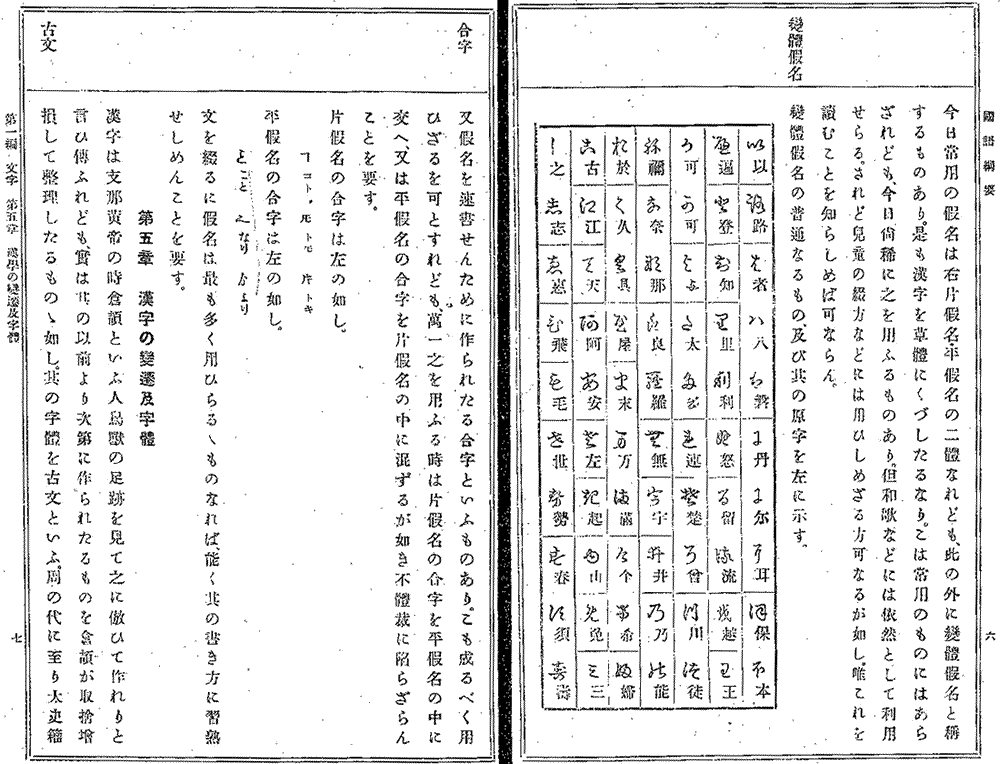 國語綱要
六
變體假名
今日常用の假名は右片假名、平假名の二體なれども、此の外に變體假名と稱
するものあり。是も漢字を草體にくづしたるなり。こは常用のものにはあら
ざれども、今日尙稀に之を用ふるものあり。但和歌などには依然として利用
せらる。されど兒童の綴方などには用ひしめざる方可なるが如し。唯これを
讀むことを知らしめば可ならん。
變體假名の普通なるもの、及び其の原字を左に示す。
以 路 者 八 磐 丹 尓 耳 保 本
遍 登 知 里 利 怒 留 流 越 王
可 可 与 太 多 連 楚 曾 川 徒
禰 奈 那 良 羅 無 宇 井 乃 能
於 久 具 屋 末 万 滿 个 希 婦
古 江 天 阿 安 左 起 山 免 三
之 志 惠 飛 毛 世 勢 春 須 壽
合字
又假名を速書せんために作られたる合字といふものあり。こも成るべく用
ひざるを可とすれども、萬一之を用ふる時は片假名の合字を平假名の中に
交へ、又は平假名の合字を片假名の中に混ずるが如き不體裁に陷らざらん
ことを要す。
片假名の合字は左の如し。
ヿ コト、 𪜈 トモ 𪜈 トキ
平假名の合字は左の如し。
こと なり より
文を綴るに假名は最も多く用ひらるゝものなれば、能く其の書き方に習熟
せしめんことを要す。
第五章 漢字の變遷及字體
古文
漢字は支那黄帝の時倉頡といふ人鳥獸の足跡を見て之に倣ひて作れりと
言ひ傳ふれども、實は其の以前より次第に作られたるものを倉頡が取捨增
損して整理したるものゝ如し。其の字體を古文といふ。周の代に至り太史籀
第一編 文字 第五章 漢學の變遷及字體
七